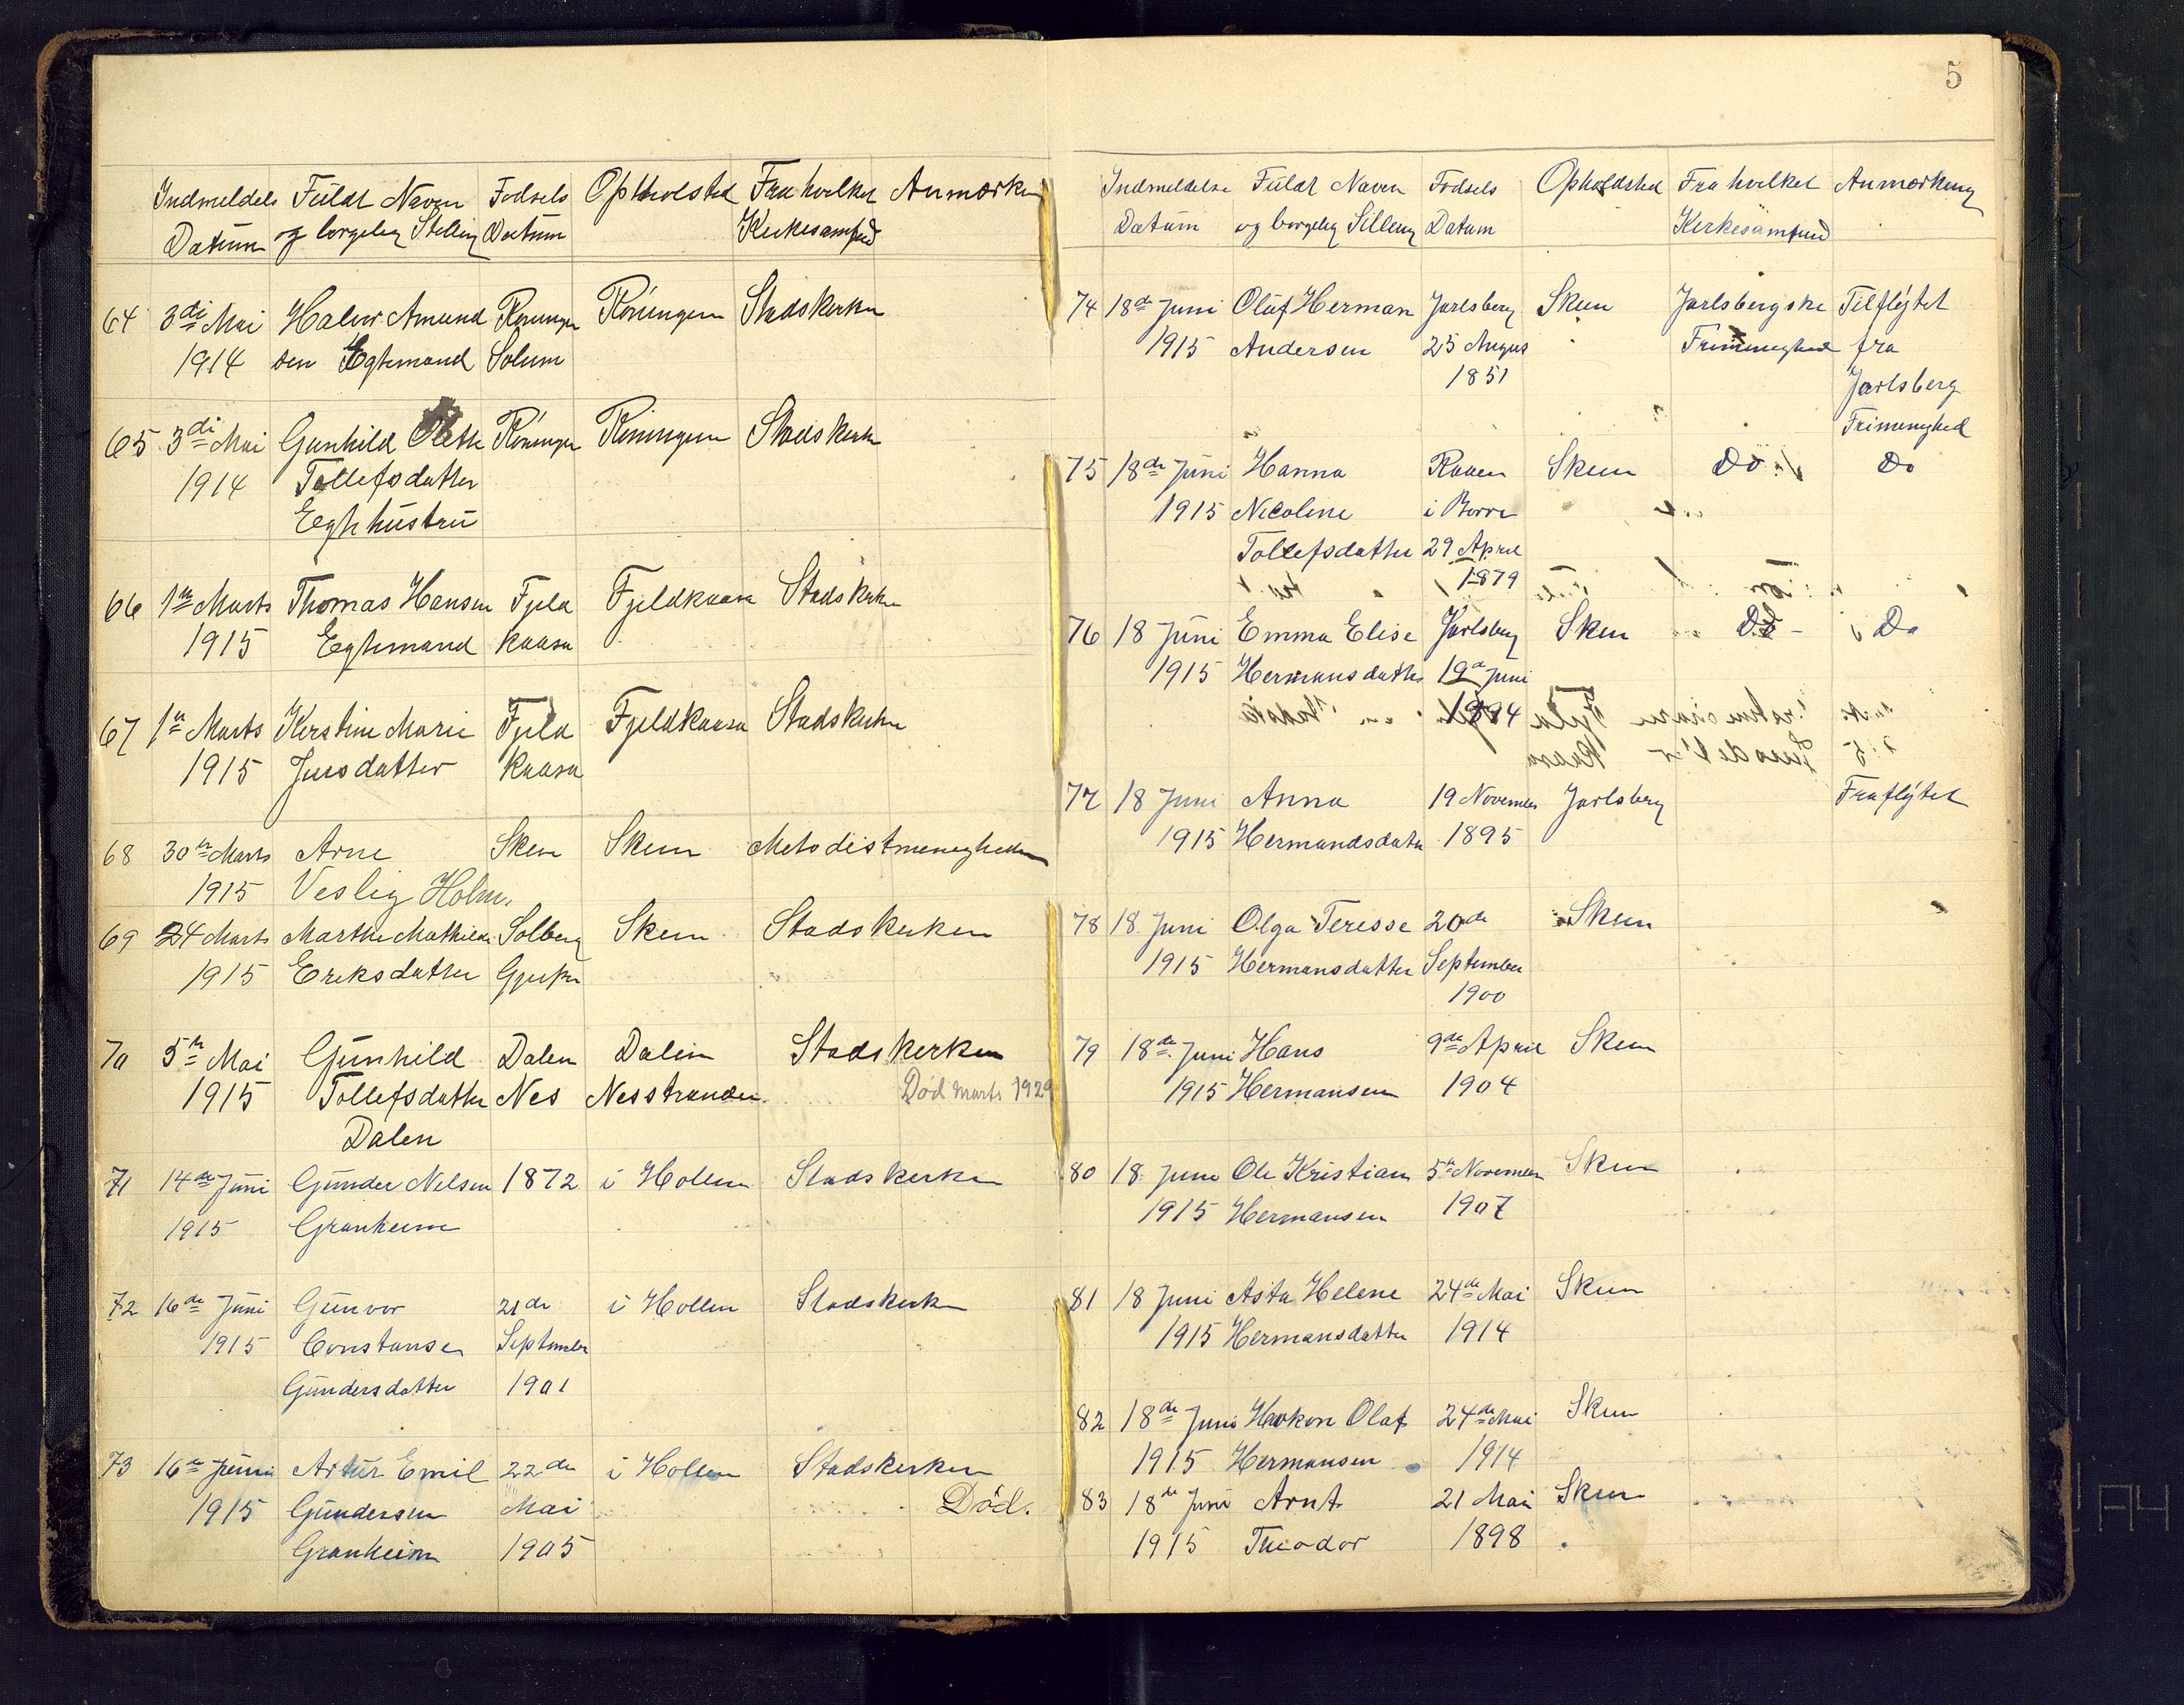 5
Indmeldels Fuldt Navn Fodsels Ophholsted Fra hvilket Anmærkn
Datum og borgeleg Stelling Datum Kirkesamfud
64 3di Mai Halvor Amund Roningen Roningen Stadskerken
1914 sen Egtemand Solum
65 3di Mai Gunhild Olette Roningen Roningen Stadskerke
1914 Tollefsdatter
Egtehustru
66 1te Marts Thomas Hansen Fjeld Fjeldkaasa Stadskerken
1915 Egtemand kaasa
67 1te Marts Kerstine Marie Fjeld Fjeldkaasa Stadskerken
1915 Jensdatter kaasa
68 30te Marts Arne Skien Skien Metodistmenegheden
1915 Veslig Holm.
69 24 Marts Marthe Mathilde Solberg Skien Stadskerken
1915 Ereksdatter
70 5te Mai Gunhild Dalen Dalen Stadskerken
1915 Tollefsdatter Nes Nesstranden. Død Marts 1929
Dalen
71 14de Juni Gunder Nelsen 1872 i Hollen Stadskerken
1915 Granheim
72 16de Juni Gunvor 21de i Hollen Stadskerke
1915 Constanse September
Gundersdatter 1901
73 16de Juni Artur Emil 22de i Hollen Stadskerken
1915 Gundersen Mai Død.
Granheim 1905
Indmeldelse Fuldt Navn Fodsels Opholdsted Fra hvilket Anmærkning
Datum og borgeleg Silleng Datum Kerkesamfund
74 18de Juni Oluf Herman Jarlsberg Skien Jarlsbergske Tilflytet
1915 Andersen 25 Augus Frimenighed fra
1851 Jarlsberg
Frimenighed
75 18de Juni Hanna Raaen Skien Do Do
1915 Nicoline i Borre
Tollefsdatter 29 April
1879
76 18 Juni Emma Elise Jarlsberg Skien Do - Do
1915 Hermansdatter 19de Juni
1894
77 18 Juni Anna 19 November Jarlsberg Fraflytet
1915 Hermandsdatter 1895
78 18 Juni Olga Teresse 20de Skien
1915 Hermansdatter September
1900
79 18de Juni Hans 9de April Skien
1915 Hermansen 1904
80 18 Juni Ole Kristian 5te November Skien
1915 Hermansen 1907
81 18 Juni Asta Helene 24de Mai Skien
1915 Hermansdatter 1914
82 18de Juni Haakon Olaf 24de Mai Skien
1915 Hermansen 1914
83 18de Juni Arnt 21 Mai Skien
1915 Theodor 1898